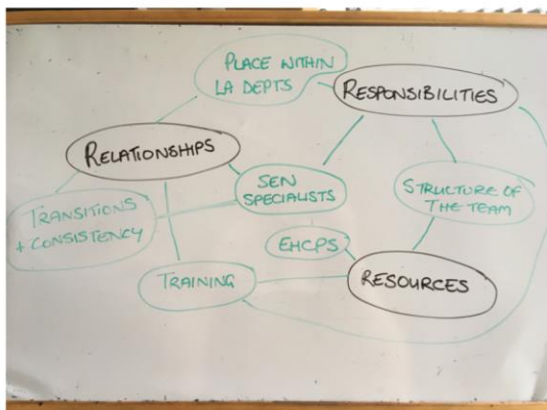 PLACE WITHIN
LA DEPTS
RESPONSIBILITIES
RELATIONSHIPS
SEN
SPECIALISTS
STRUCTURE OF
THE TEAM
TRANSITIONS
+ CONSISTENCY
EHCPS
TRAINING
RESOURCES